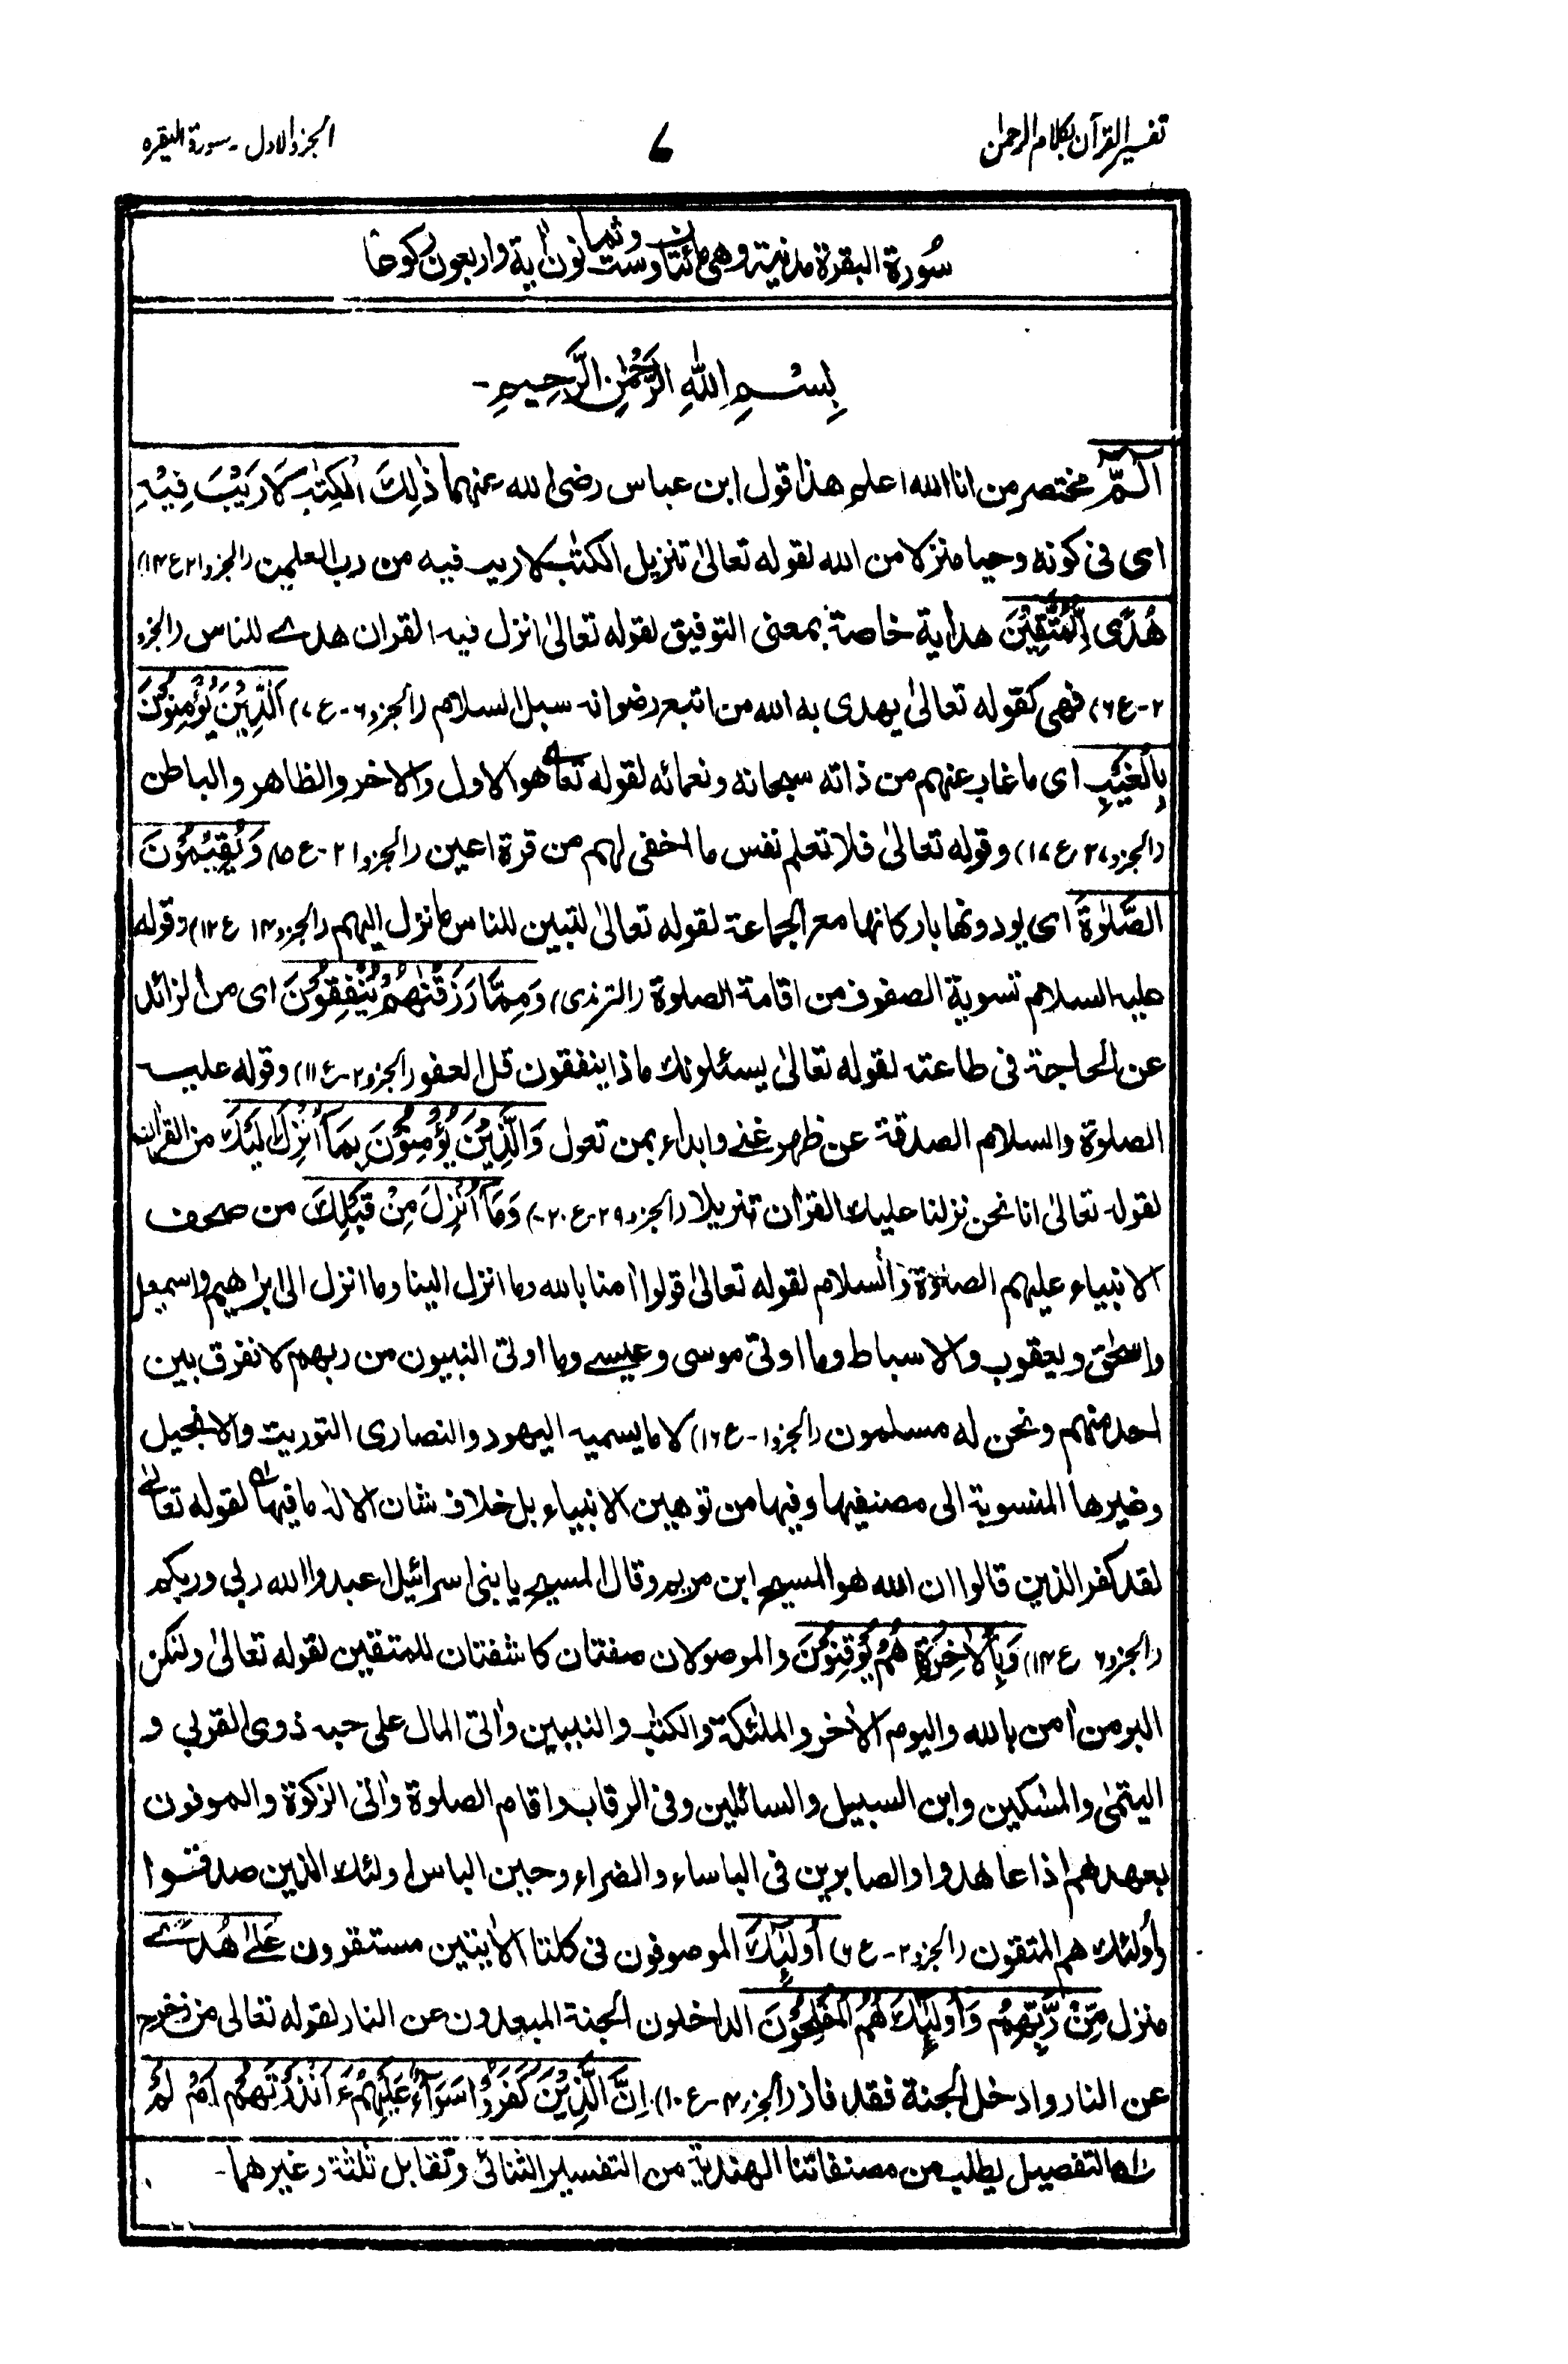 تفسیر القرآن بکلام الرحمن
۷
الجزء الاول - سورة البقره
سُورة البقرة مدنیة وهی مائتان وست وثمانون اٰیة واربعون رکوعًا
بِسْمِ اللهِ الرَّحْمٰنِ الرَّحِیمِ -
الٓمّٓ مختصر من انا الله اعلم هذا قول ابن عباس رضی الله عنهما ذٰلِكَ الْكِتٰبُ لَا رَیْبَ فِیْهِ
ای فی کونه وحیا منزلا من الله لقوله تعالیٰ تنزیل الکتٰب لا ریب فیه من رب العلمین (الجزو ۲۱ ع ۱۴)
هُدًی لِّلْمُتَّقِیْنَ هدایة خاصة بمعنی التوفیق لقوله تعالیٰ انزل فیه القران هدے للناس (الجزو
۲-ع ۶) فهی کقوله تعالیٰ یهدی به الله من اتبع رضوانه سبل السلام (الجزو ۶-ع ۷) الَّذِیْنَ یُؤْمِنُوْنَ
بِالْغَیْبِ ای ما غاب عنهم من ذاته سبحانه ونعمائه لقوله تعالے هو الاول والاخر والظاهر والباطن
(الجزو ۲۷ ع ۱۷) وقوله تعالیٰ فلا تعلم نفس ما اخفی لهم من قرة اعین (الجزو ۲۱-ع ۱۵) وَیُقِیْمُوْنَ
الصَّلٰوةَ ای یودونها بارکانها مع الجماعة لقوله تعالیٰ لتبین للناس ما نزل الیهم (الجزو ۱۴ ع ۱۲) وقوله
علیه السلام تسویة الصفوف من اقامة الصلوة (الترمذی) وَمِمَّا رَزَقْنٰهُمْ یُنْفِقُوْنَ ای من الزائد
عن الحاجة فی طاعته لقوله تعالیٰ یسئلونك ماذا ینفقون قل العفو (الجزو ۲-ع ۱۱) وقوله علیه
الصلوة والسلام الصدقة عن ظهر غنے وابداء بمن تعول وَالَّذِیْنَ یُؤْمِنُوْنَ بِمَآ اُنْزِلَ اِلَیْكَ من القراٰن
لقوله تعالیٰ انا نحن نزلنا علیك القرٰان تنزیلا (الجزو ۲۹-ع ۲۰) وَمَآ اُنْزِلَ مِنْ قَبْلِكَ من صحف
الانبیاء علیهم الصلوة والسلام لقوله تعالیٰ قولوا اٰمنا بالله وما انزل الینا وما انزل الی ابراهیم واسمعیل
واسحٰق ویعقوب والاسباط وما اوتی موسی وعیسے وما اوتی النبیون من ربهم لا نفرق بین
احد منهم ونحن له مسلمون (الجزو ۱-ع ۱۶) لا ما یسمیه الیهود والنصاری التوریت والانجیل
وغیرها المنسوبة الی مصنفیها وفیها من توهین الانبیاء بل خلاف شان الالٰه ما فیها لقوله تعالیٰ
لقد کفر الذین قالوا ان الله هو المسیح ابن مریم وقال المسیح یا بنی اسرائیل اعبدوا الله ربی وربکم
(الجزو ۶ ع ۱۴) وَبِالْاٰخِرَةِ هُمْ یُوْقِنُوْنَ والموصولان صفتان کاشفتان للمتقین لقوله تعالیٰ ولٰکن
البر من اٰمن بالله والیوم الاٰخر والملٰئکة والکتٰب والنبیین واٰتی المال علی حبه ذوی القربی و
الیتمیٰ والمسٰکین وابن السبیل والسائلین وفی الرقاب واقام الصلوة واٰتی الزکوة والموفون
بعهدهم اذا عاهدوا والصابرین فی الباساء والضراء وحین الباس اولئك الذین صدقوا
واُولئك هم المتقون (الجزو ۲-ع ۶) اُولٰٓئِكَ الموصوفون فی کلتا الاٰیتین مستقرون عَلٰی هُدًے
منزل مِّنْ رَّبِّهِمْ وَاُولٰٓئِكَ هُمُ الْمُفْلِحُوْنَ الداخلون الجنة المبعدون عن النار لقوله تعالی من زحزح
عن النار وادخل الجنة فقد فاز (الجزو ۴-ع ۱۰) اِنَّ الَّذِیْنَ کَفَرُوْا سَوَآءٌ عَلَیْهِمْ ءَاَنْذَرْتَهُمْ اَمْ لَمْ
التفصیل یطلب من مصنفاتنا الهندیة من التفسیر الثنائی وتقابل ثلٰثة وغیرهما -